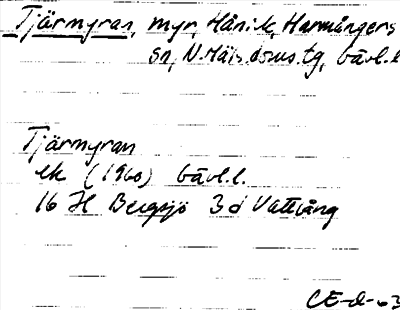 Tjärmyran, myr, Hån.k, Harmångers
sn, N.Häls.doms.tg, Gävl.l
Tjärmyran
ek (1960) Gävl.l.
16 H Bergsjö 3d Vattlång
CE-d-63